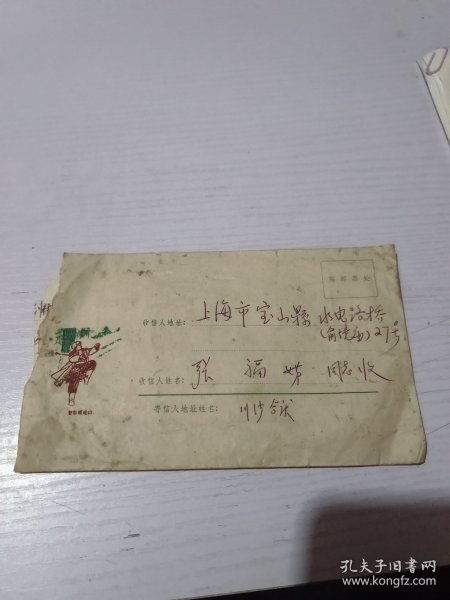 贴邮票处
收信人地址: 上海市宝山县 水电路桥
27号
收信人姓名: 张福娣 同志收
寄信人地址姓名: 川沙合庆
智取威虎山
孔夫子旧书网
www.kongfz.com